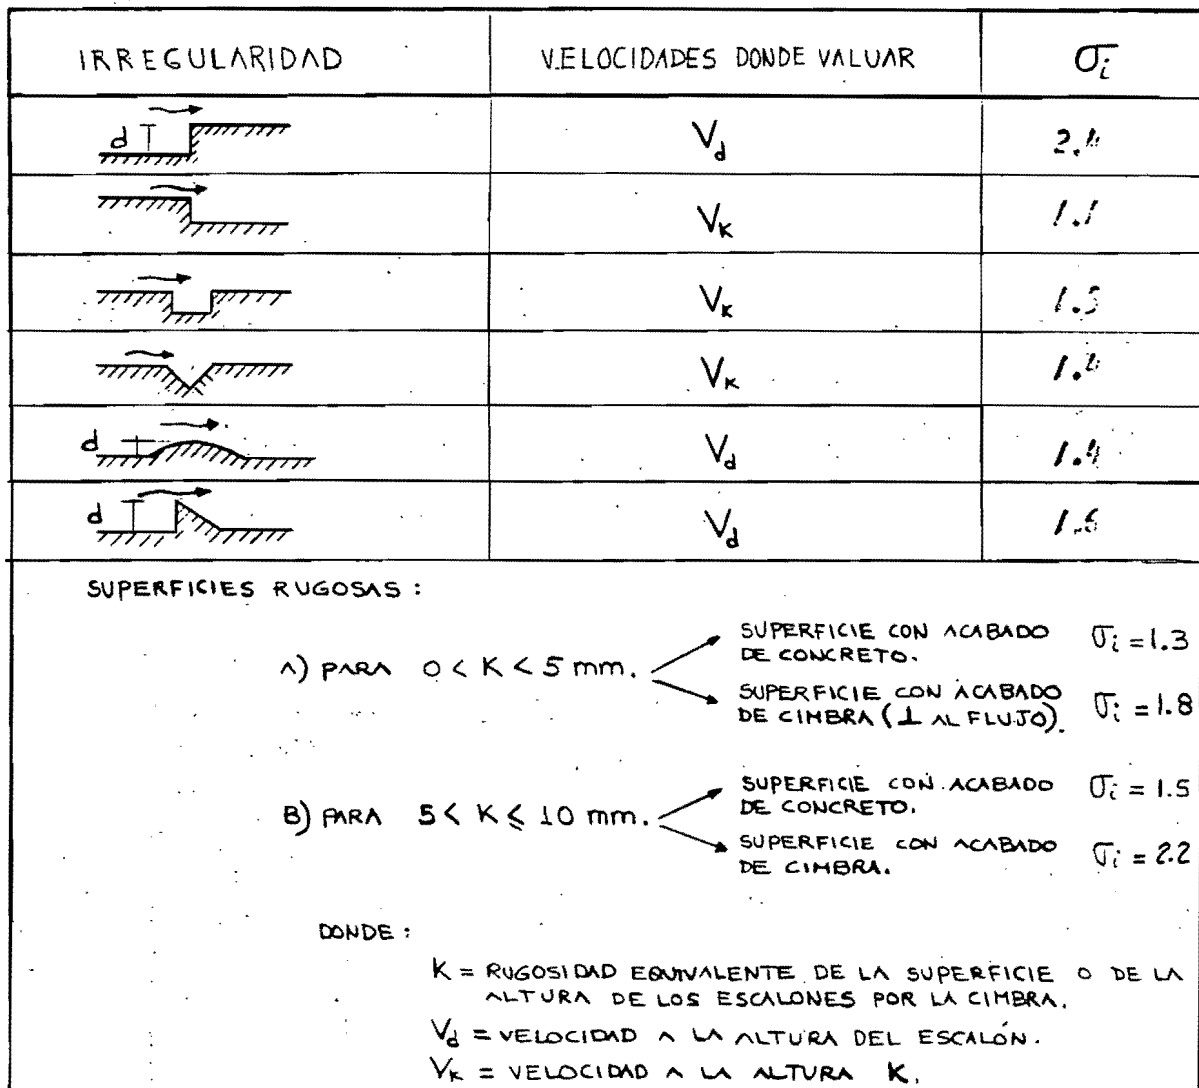 IRREGULARIDAD VELOCIDADES DONDE VALUAR σi
d Vd
Vk 1.1
Vk
Vk
d Vd 1.4
d Vd
SUPERFICIES RUGOSAS :
A) PARA 0 < K < 5 mm.
SUPERFICIE CON ACABADO DE CONCRETO. σi = 1.3
SUPERFICIE CON ACABADO DE CIMBRA (⊥ AL FLUJO). σi = 1.8
B) PARA 5 < K ≤ 10 mm.
SUPERFICIE CON ACABADO DE CONCRETO. σi = 1.5
SUPERFICIE CON ACABADO DE CIMBRA. σi = 2.2
DONDE :
K = RUGOSIDAD EQUIVALENTE DE LA SUPERFICIE O DE LA
ALTURA DE LOS ESCALONES POR LA CIMBRA.
Vd = VELOCIDAD A LA ALTURA DEL ESCALÓN.
Vk = VELOCIDAD A LA ALTURA K.